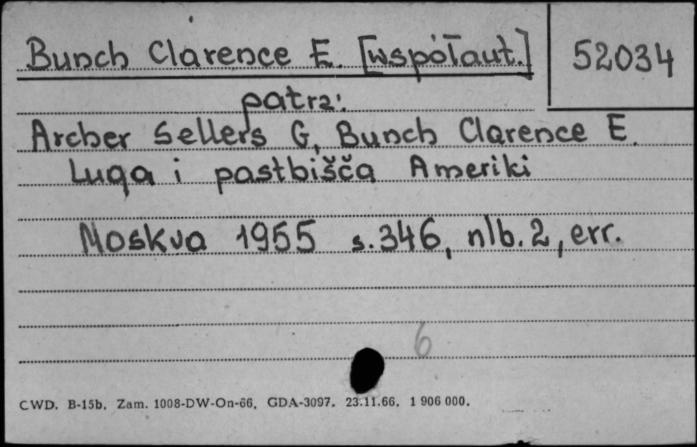 Bunch Clarence E. [współaut.] 52034
patrz:
Archer Sellers G, Bunch Clarence E.
Luga i pastbišča Ameriki
Moskva 1955 s. 346, nlb. 2, err.
6
CWD. B-15b. Zam. 1008-DW-On-66. GDA-3097. 23.11.66. 1 906 000.